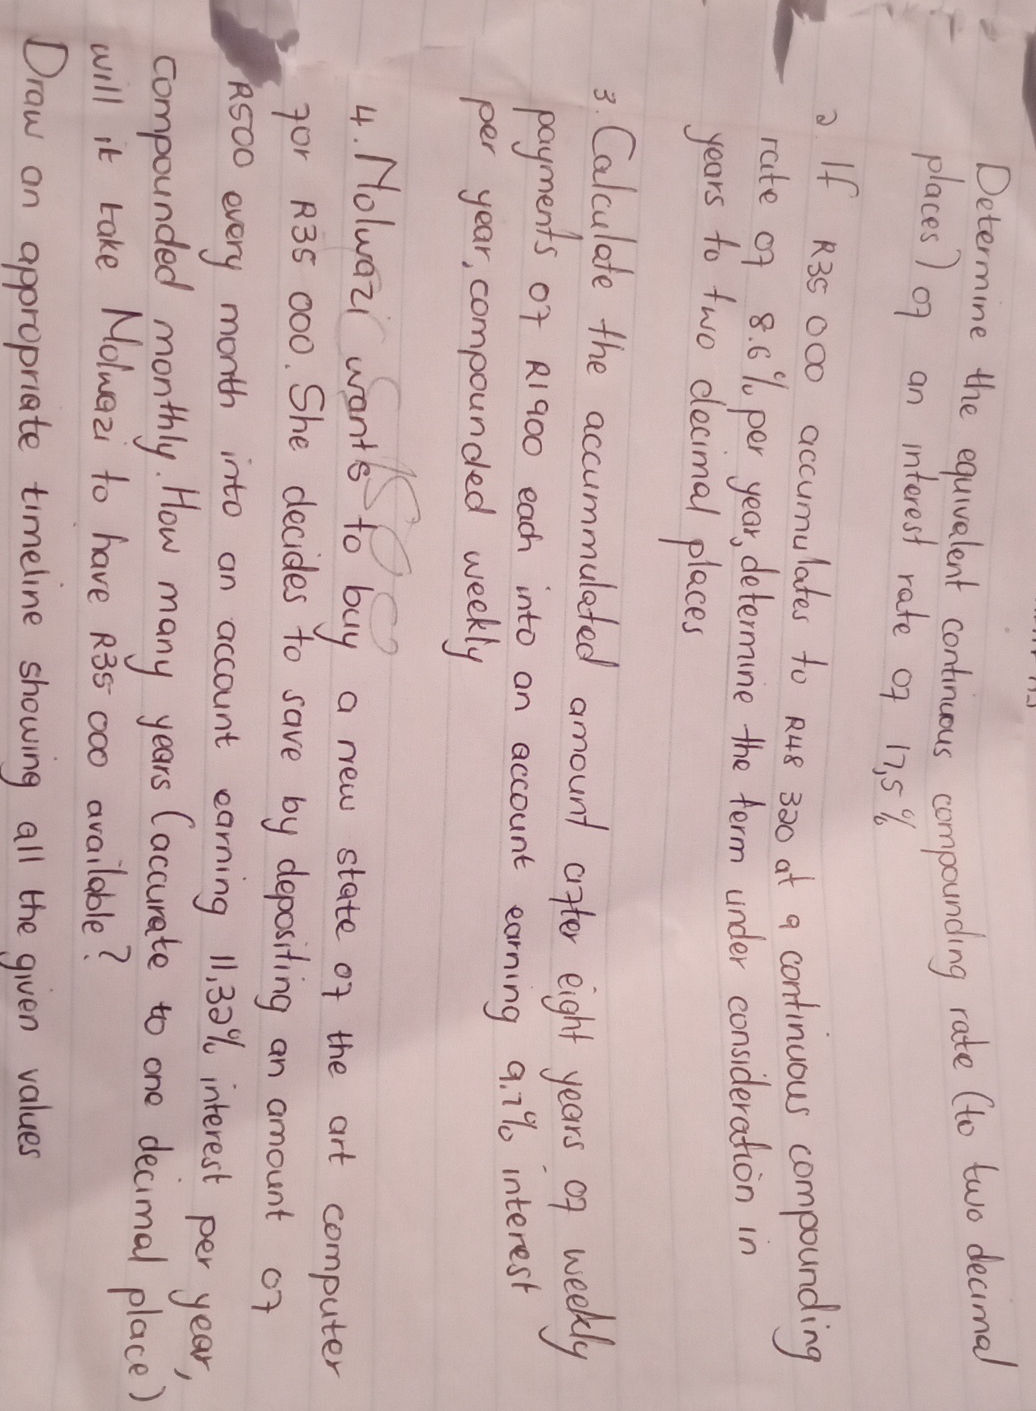 Determine the equivalent continuous compounding rate (to two decimal
places) of an interest rate of 17,5%
2. If R35 000 accumulates to R48 320 at a continuous compounding
rate of 8.6% per year, determine the term under consideration in
years to two decimal places
3. Calculate the accummulated amount after eight years of weekly
payments of R1900 each into an account earning 9.7% interest
per year, compounded weekly
4. Nolwazi wants to buy a new state of the art computer
for R35 000. She decides to save by depositing an amount of
R500 every month into an account earning 11,32% interest per year,
compounded monthly. How many years (accurate to one decimal place)
will it take Nolwazi to have R35 000 available?
Draw an appropriate timeline showing all the given values